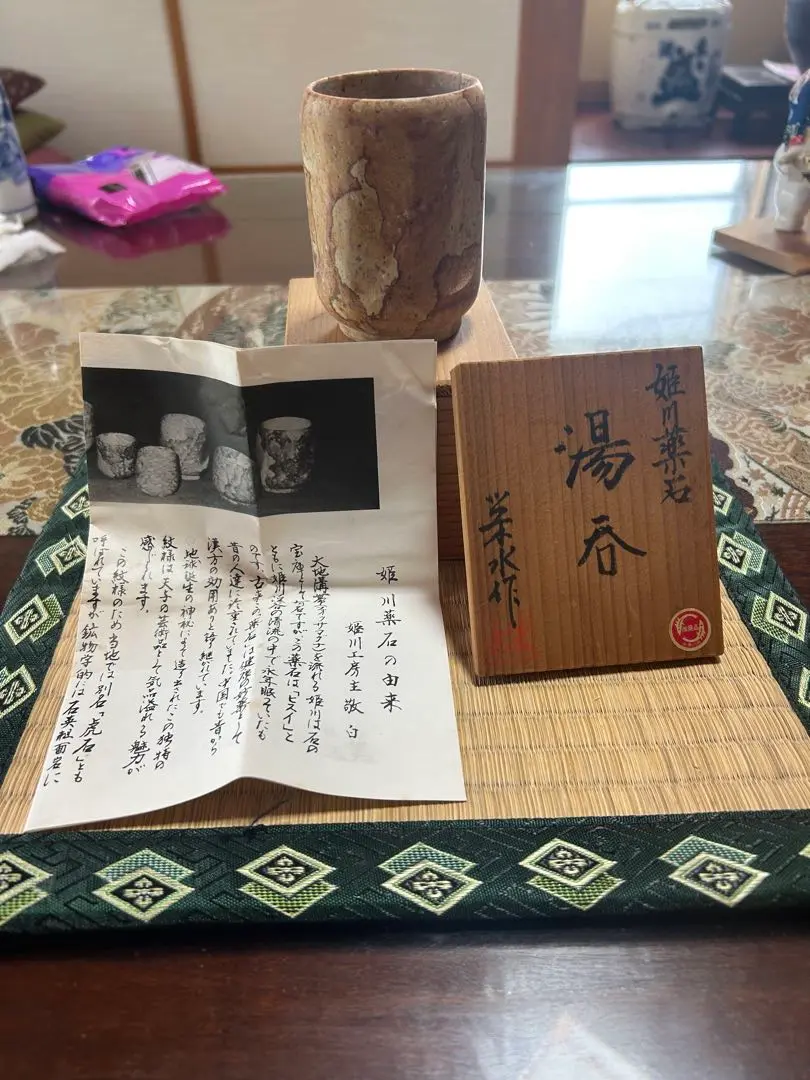 姫川薬石の由来
姫川工房主 敬白
大地溝帯(フォッサマグナ)を流れる姫川は石の
宝庫として有名ですがこの薬石は「ヒスイ」と
ともに姫川渓谷の清流の中で永年眠っていたも
のです。古来この薬石は健康の妙薬として
昔の人達に珍重され中国でも昔から
漢方の効用ありと語り継がれています。
地球誕生の神秘によって造り出されたこの独特の
紋様は天与の芸術品として気品溢れる魅力が
感じられます。
この紋様のため当地では別名「虎石」とも
呼ばれていますが鉱物学的には石英粗面岩に
姫川薬石
湯呑
栄水作